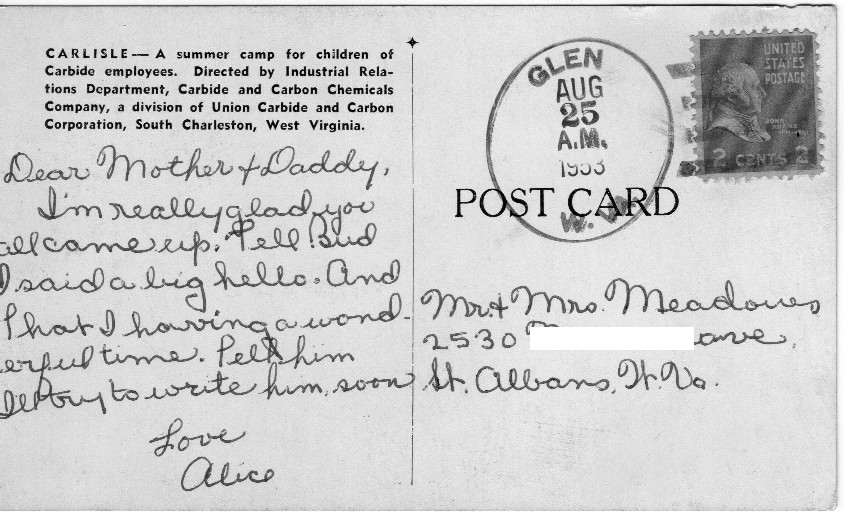 CARLISLE — A summer camp for children of
Carbide employees. Directed by Industrial Rela-
tions Department, Carbide and Carbon Chemicals
Company, a division of Union Carbide and Carbon
Corporation, South Charleston, West Virginia.
Dear Mother & Daddy,
I'm really glad you
all came up. Tell Bud
I said a big hello. And
That I having a wond-
erful time. Tell him
I'll try to write him soon
Love
Alice
GLEN
AUG
25
A.M.
1953
W. VA
UNITED
STATES
POSTAGE
JOHN
ADAMS
2 CENTS 2
POST CARD
Mr. & Mrs. Meadows
2530 ave.
St. Albans, W. Va.